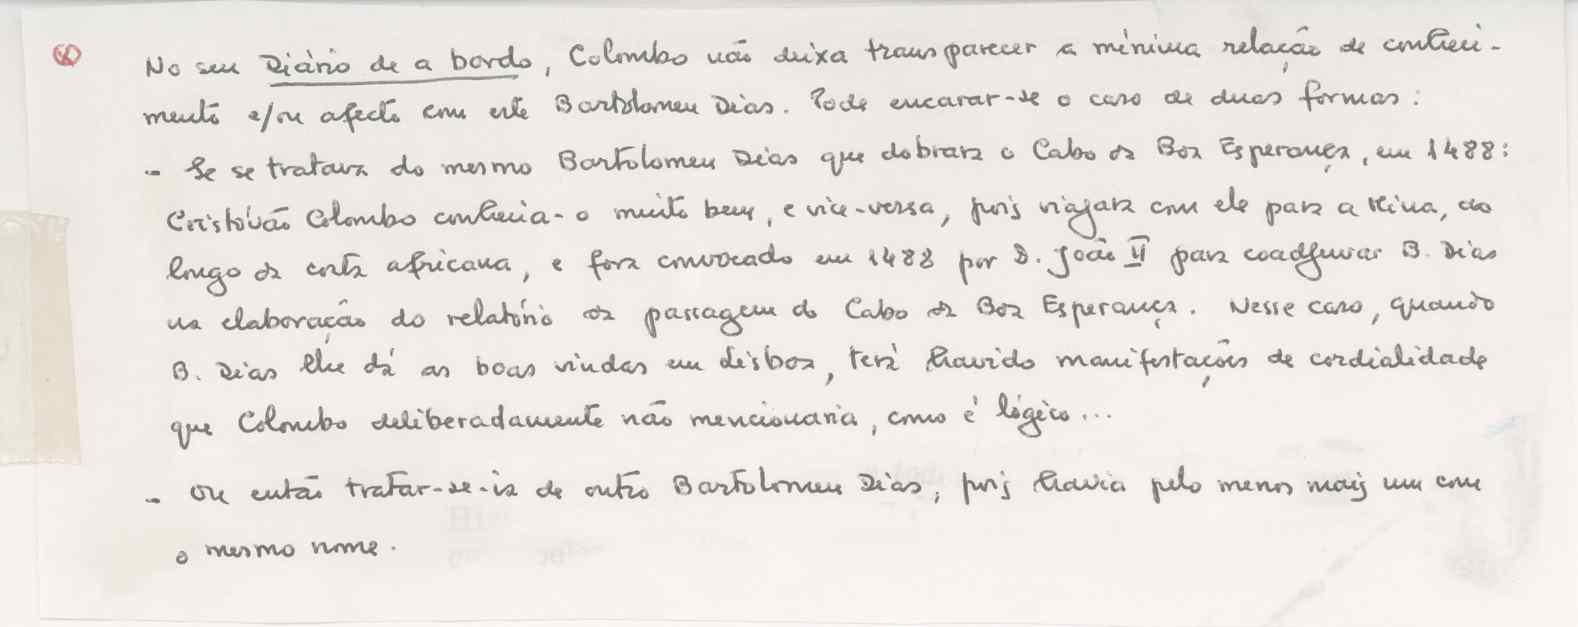 No seu Diário de a bordo, Colombo não deixa transparecer a mínima relação de conheci-
mento e/ou afecto com este Bartolomeu Dias. Pode encarar-se o caso de duas formas:
- Se se tratava do mesmo Bartolomeu Dias que dobrara o Cabo da Boa Esperança, em 1488:
Cristóvão Colombo conhecia-o muito bem, e vice-versa, pois viajara com ele para a Mina, ao
longo da costa africana, e fora convocado em 1488 por D. João II para coadjuvar B. Dias
na elaboração do relatório da passagem do Cabo da Boa Esperança. Nesse caso, quando
B. Dias lhe dá as boas vindas em Lisboa, terá havido manifestações de cordialidade
que Colombo deliberadamente não mencionaria, como é lógico...
- Ou então tratar-se-ia de outro Bartolomeu Dias, pois havia pelo menos mais um com
o mesmo nome.